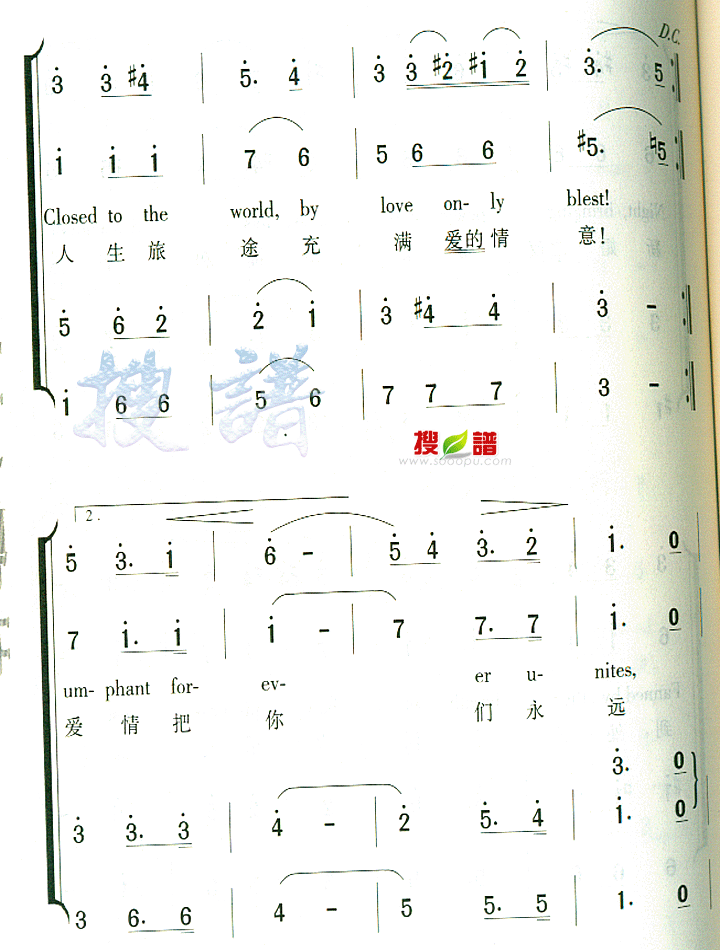 D.C.
3 3 #4 | 5. 4 | 3 3 #2 #1 2 | 3. 5
1 1 1 | 7 6 | 5 6 6 | #5. ♮5
Closed to the world, by love on- ly blest!
人 生 旅 途 充 满 爱的 情 意!
5 6 2 | 2 1 | 3 #4 4 | 3 –
1 6 6 | 5 6 | 7 7 7 | 3 –
搜 譜
搜 譜
www.sooopu.com
2.
5 3. 1 | 6 – | 5 4 3. 2 | 1. 0
7 1. 1 | 1 – | 7 7. 7 | 1. 0
um- phant for- ev- er u- nites,
爱 情 把 你 们 永 远
3. 0
3 3. 3 | 4 – | 2 5. 4 | 1. 0
3 6. 6 | 4 – | 5 5. 5 | 1. 0